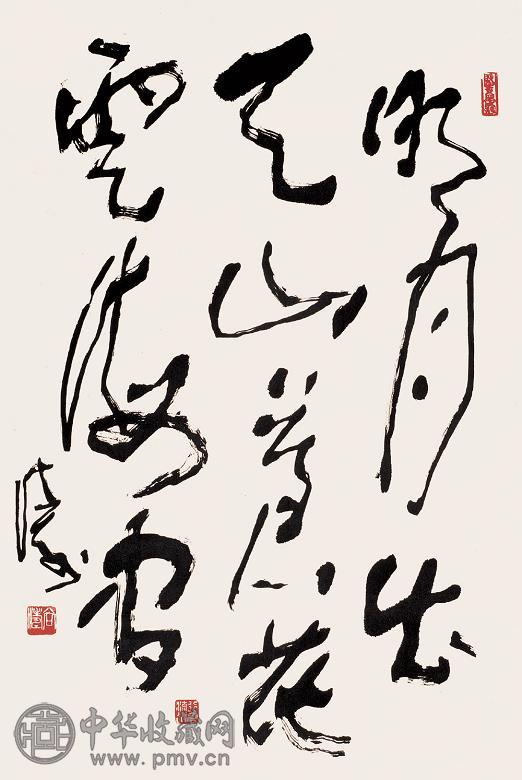 明月出
天山蒼茫
雲海間
中华收藏网
www.pmv.cn